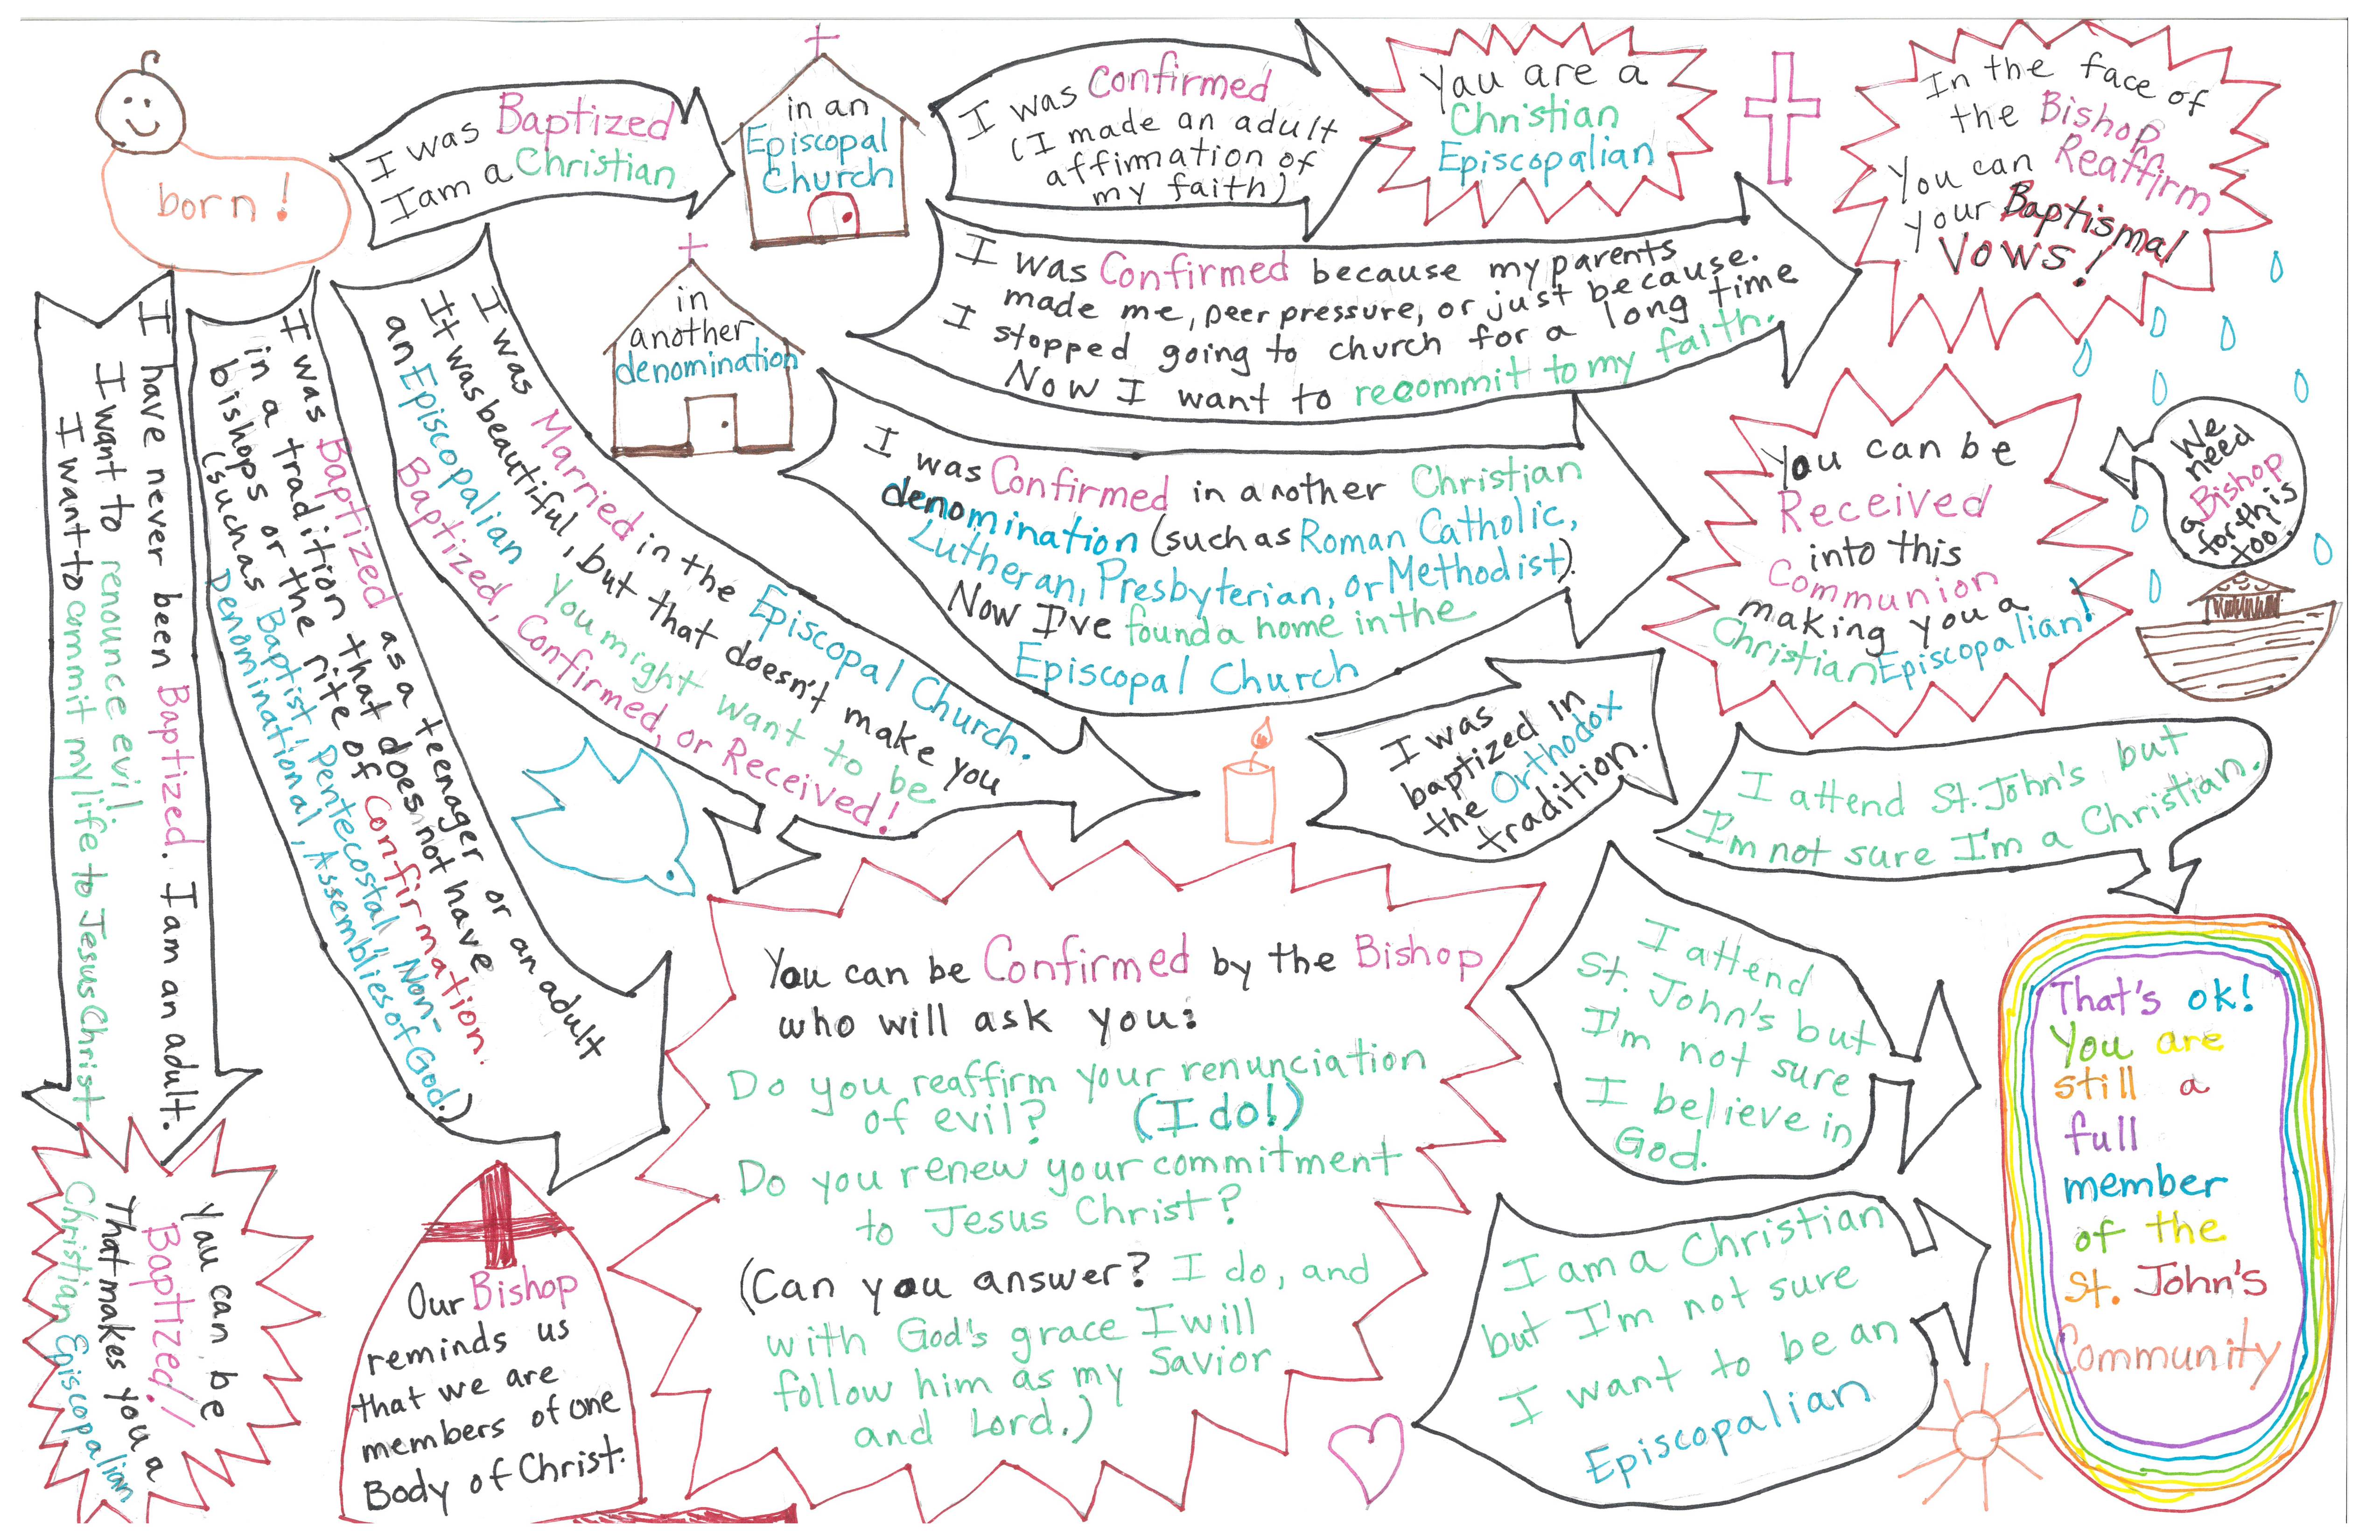 born!
I was Baptized
I am a Christian
in an
Episcopal
Church
I was Confirmed
(I made an adult
affirmation of
my faith)
You are a
Christian
Episcopalian
In the face of
the Bishop
You can Reaffirm
your Baptismal
Vows!
in
another
denomination
I was Confirmed because my parents
made me, peer pressure, or just because.
I stopped going to church for a long time
Now I want to recommit to my faith.
I was Confirmed in another Christian
denomination (such as Roman Catholic,
Lutheran, Presbyterian, or Methodist).
Now I've found a home in the
Episcopal Church
You can be
Received
into this
Communion
making you a
Christian Episcopalian!
We
need
a Bishop
for this
too!
I was Married in the Episcopal Church.
It was beautiful, but that doesn't make you
an Episcopalian You might want to be
Baptized, Confirmed, or Received!
I was Baptized as a teenager or an adult
in a tradition that does not have
bishops or the rite of Confirmation.
(such as Baptist, Pentecostal, Non-
Denominational, Assemblies of God.)
I have never been Baptized. I am an adult.
I want to renounce evil
I want to commit my life to Jesus Christ
You can be
Baptized!!
That makes you a
Christian Episcopalian
Our Bishop
reminds us
that we are
members of one
Body of Christ.
I was
baptized in
the Orthodox
tradition.
I attend St. John's but
I'm not sure I'm a Christian.
You can be Confirmed by the Bishop
who will ask you:
Do you reaffirm your renunciation
of evil? (I do!)
Do you renew your commitment
to Jesus Christ?
(Can you answer? I do, and
with God's grace I will
follow him as my Savior
and Lord.)
I attend
St. John's but
I'm not sure
I believe in
God.
I am a Christian
but I'm not sure
I want to be an
Episcopalian
That's ok!
You are
still a
full
member
of the
St. John's
Community